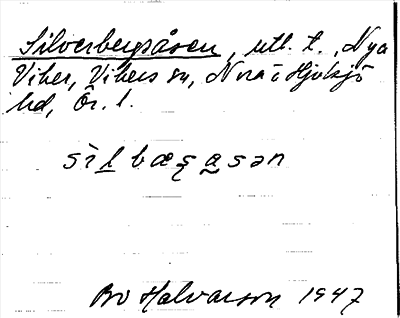 Silverbergsåsen, utl. t. Nya
Viker, Vikers sn, Nora o Hjulsjö
hd, Ör. l.
sìḷbæʂa̤sən
Bo Halvarson 1947